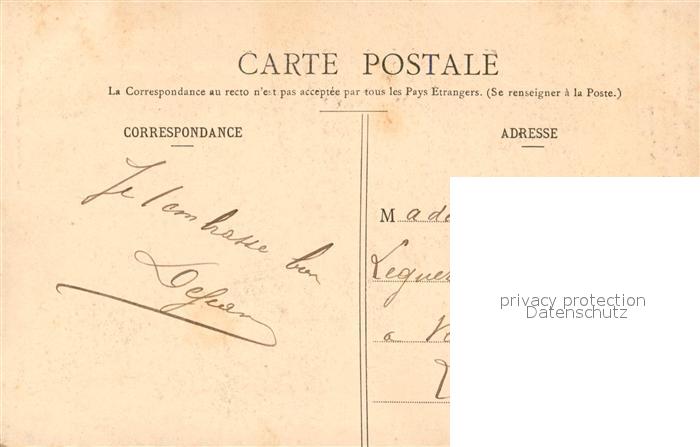 CARTE POSTALE
La Correspondance au recto n'est pas acceptée par tous les Pays Étrangers. (Se renseigner à la Poste.)
CORRESPONDANCE
Je t'embrasse bien
ADRESSE
Made
Legue
a V
privacy protection
Datenschutz